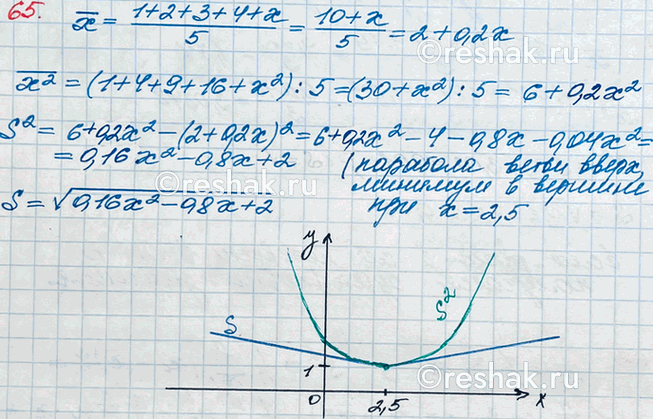 65. x̄ = (1+2+3+4+x)/5 = (10+x)/5 = 2+0,2x
x̄² = (1+4+9+16+x²) : 5 = (30+x²) : 5 = 6+0,2x²
S² = 6+0,2x² - (2+0,2x)² = 6+0,2x² - 4 - 0,8x - 0,04x² =
= 0,16x² - 0,8x + 2 (парабола ветви вверх,
минимум в вершине
S = √(0,16x² - 0,8x + 2) при x = 2,5
y
S
S²
1
0
2,5
x
reshak.ru
reshak.ru
reshak.ru
reshak.ru